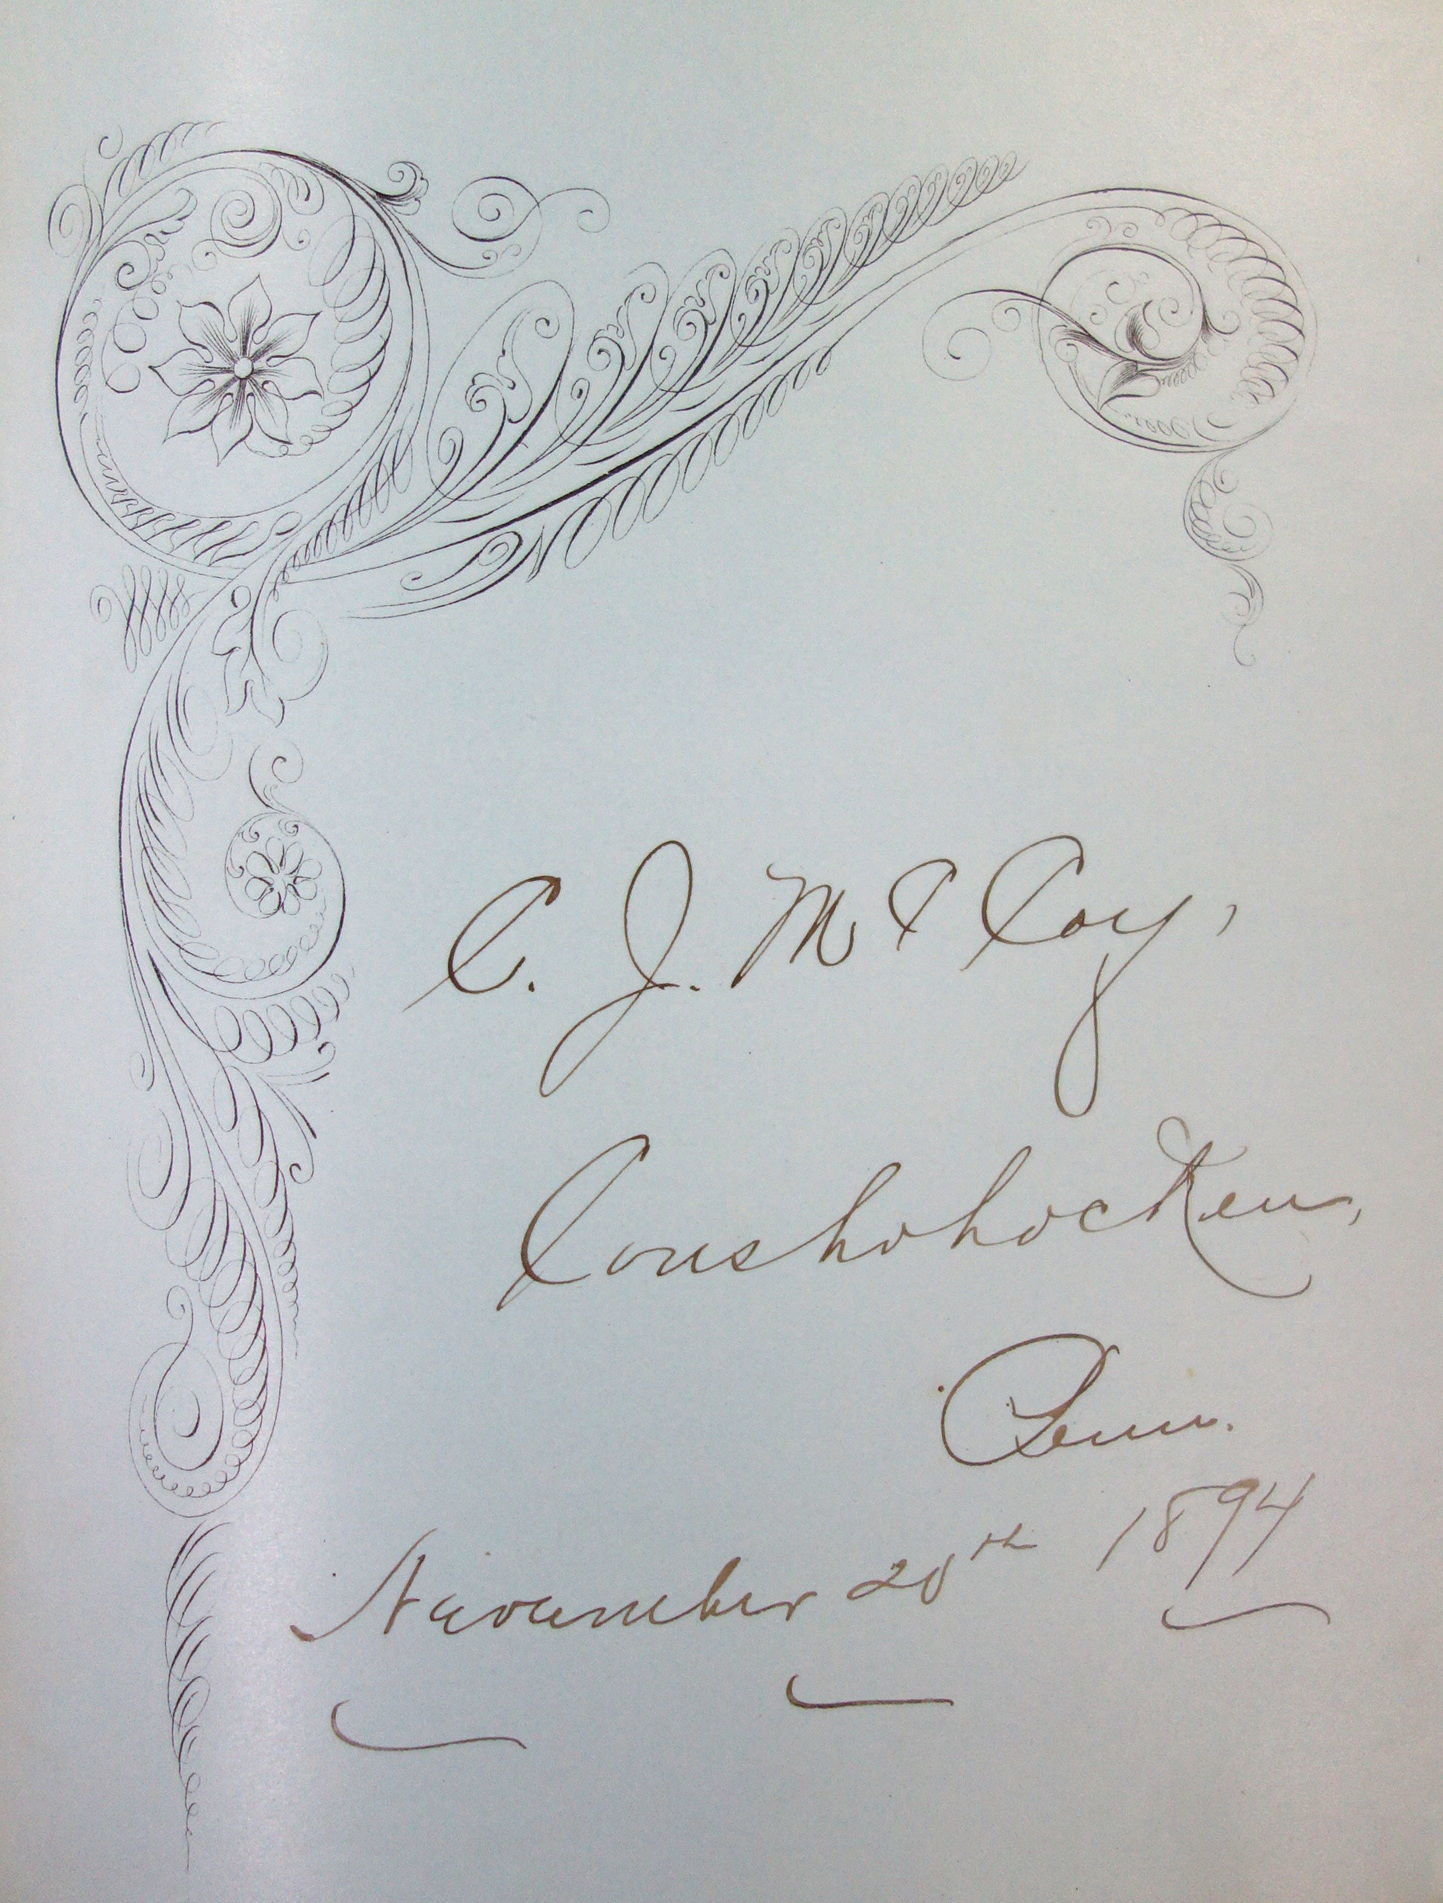 C. J. McCoy,
Conshohocken,
Penn.
November 20th 1894